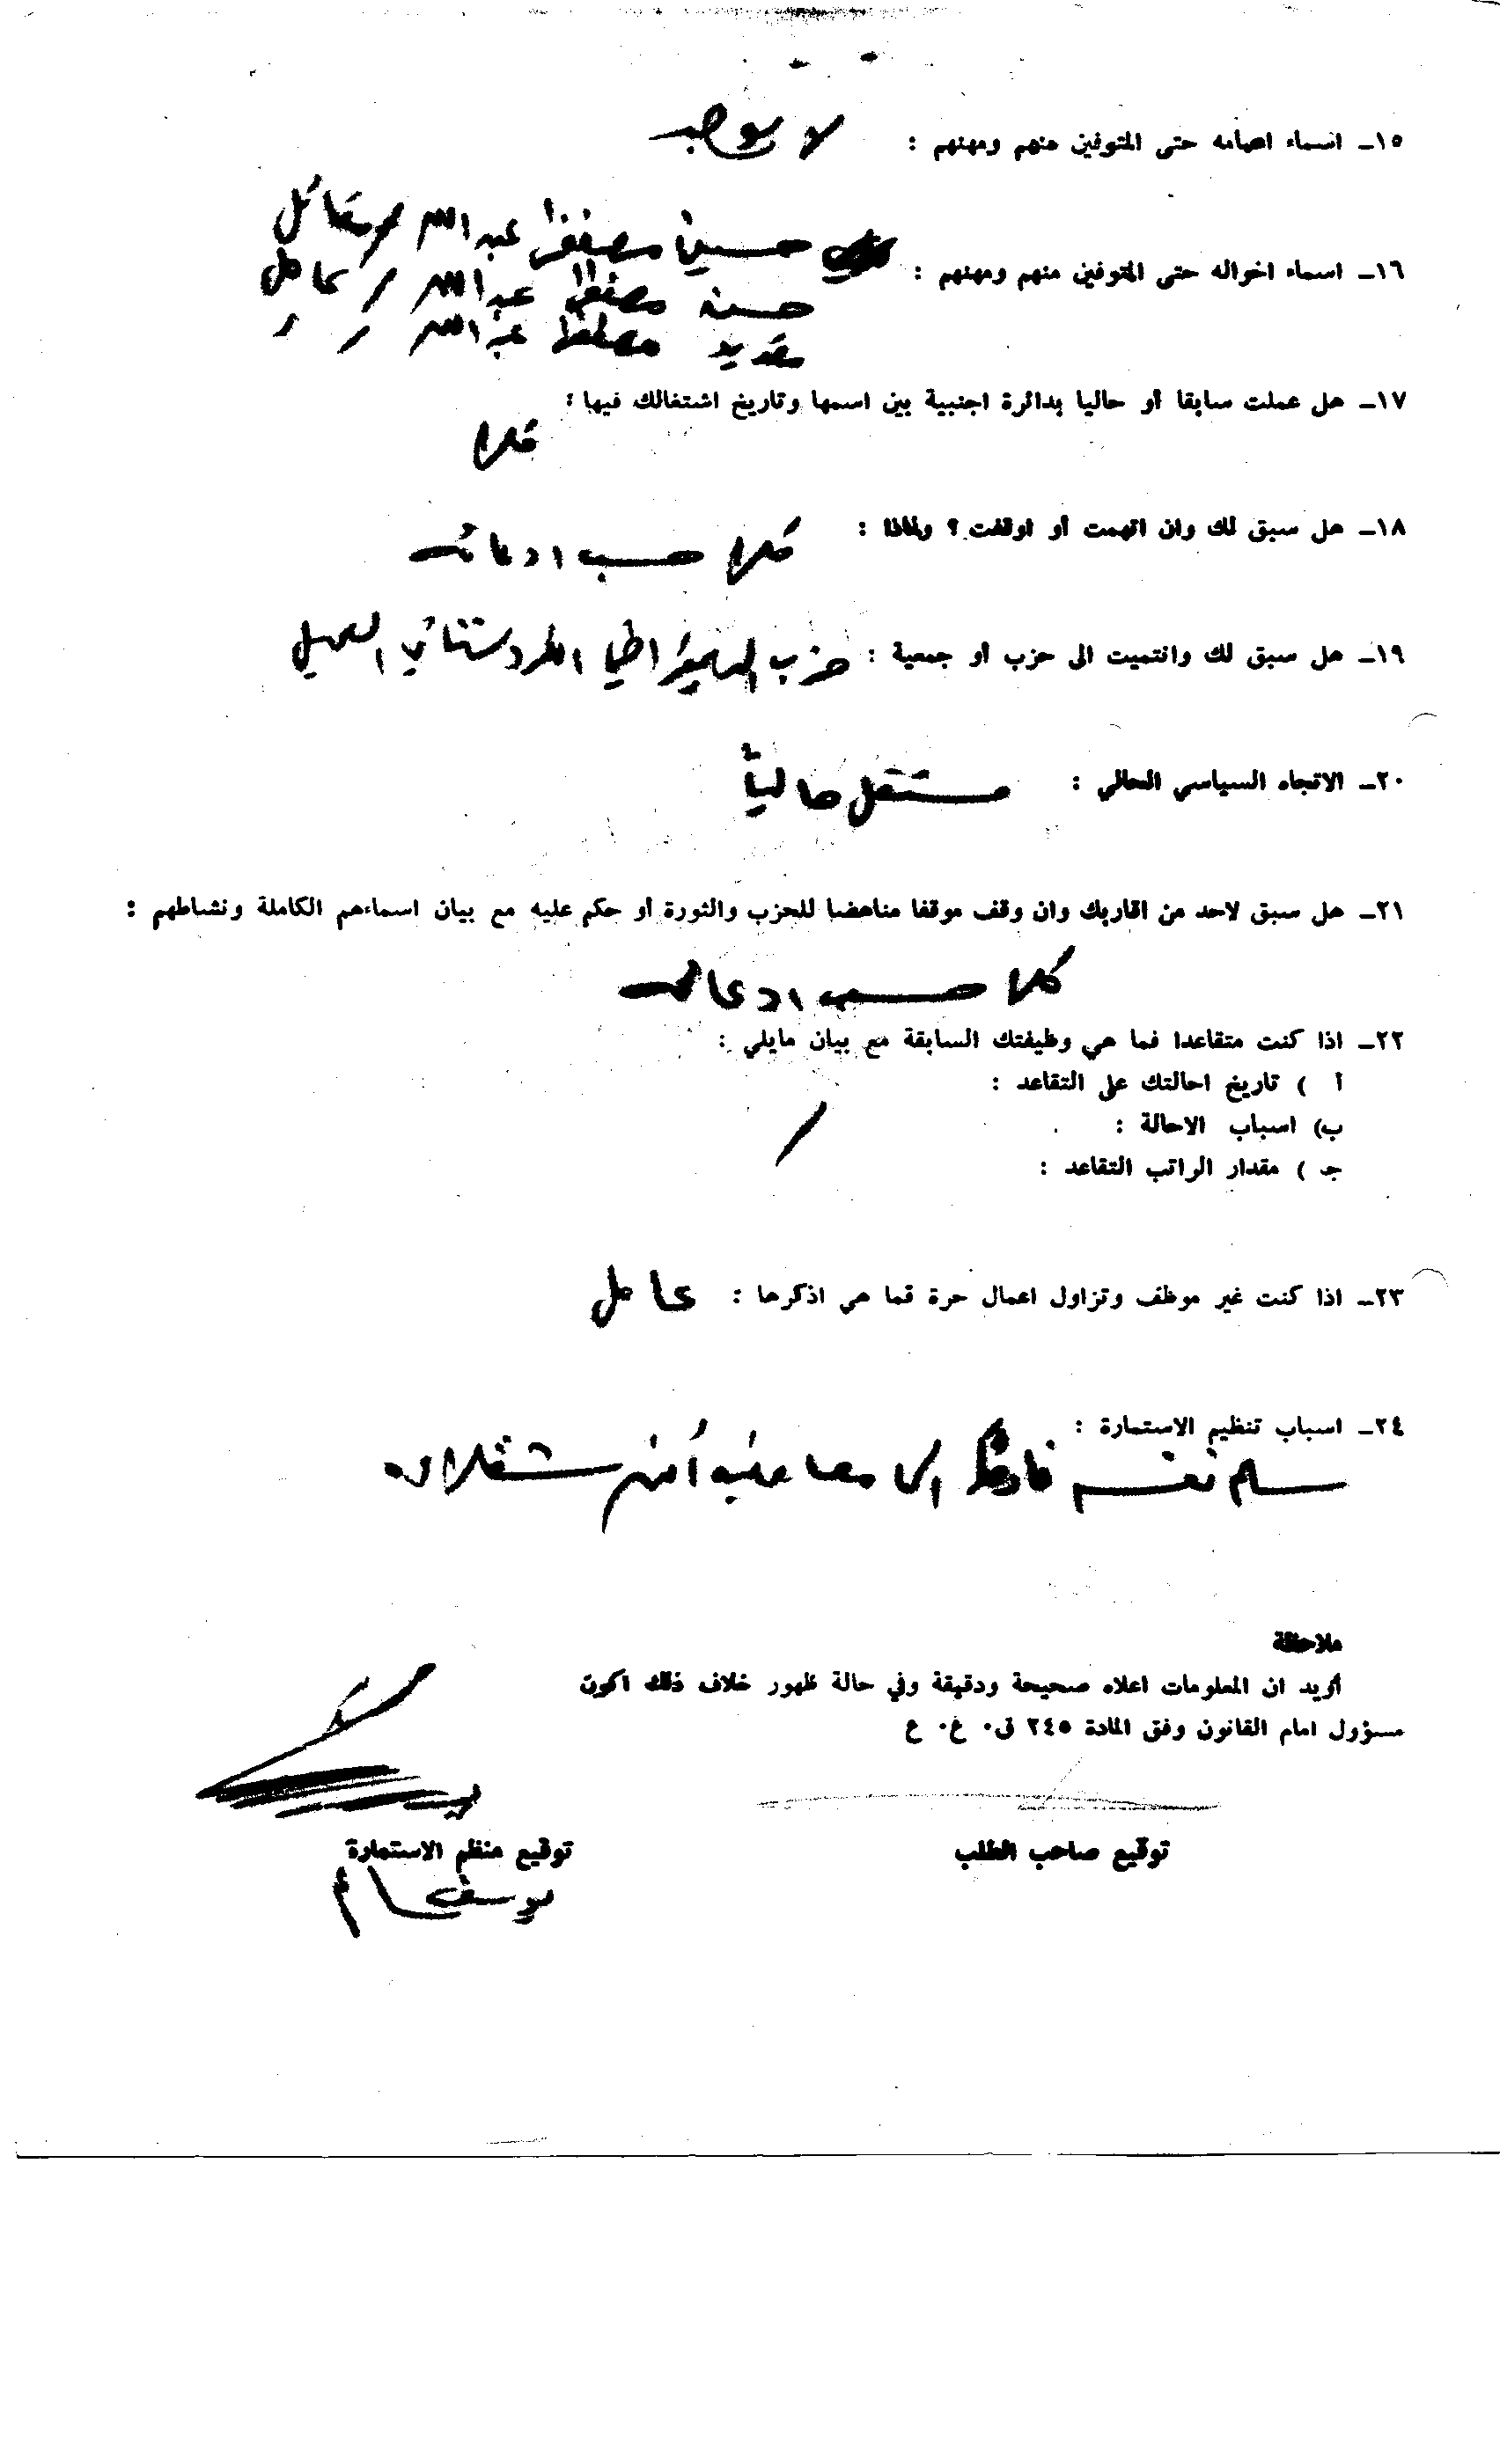 ١٥ـ اسماء اعمامه حتى المتوفين منهم ومهنهم : لا يوجد
١٦ـ اسماء اخواله حتى المتوفين منهم ومهنهم : حسين مصطفى عبدالله /
حسن مصطفى عبدالله / عامل
مصطفى عبدالله / /
١٧ـ هل عملت سابقا أو حاليا بدائرة اجنبية بين اسمها وتاريخ اشتغالك فيها :
كلا
١٨ـ هل سبق لك وان اتهمت أو اوقفت ؟ ولماذا : كلا حسب ادعائه
١٩ـ هل سبق لك وانتميت الى حزب أو جمعية : حزب الديمقراطي الكردستاني العميل
٢٠ـ الاتجاه السياسي الحالي : مستقل حالياً
٢١ـ هل سبق لاحد من اقاربك وان وقف موقفا مناهضا للحزب والثورة أو حكم عليه مع بيان اسماءهم الكاملة ونشاطهم :
كلا حسب ادعائه
٢٢ـ اذا كنت متقاعدا فما هي وظيفتك السابقة مع بيان مايلي :
أ ) تاريخ احالتك على التقاعد :
ب) اسباب الاحالة : /
جـ ) مقدار الراتب التقاعد :
٢٣ـ اذا كنت غير موظف وتزاول اعمال حرة فما هي اذكرها : عامل
٢٤ـ اسباب تنظيم الاستمارة :
سلم نفسه الى أمن شقلاوه
ملاحظة
أؤيد ان المعلومات اعلاه صحيحة ودقيقة وفي حالة ظهور خلاف ذلك اكون
مسؤول امام القانون وفق المادة ٢٤٥ ق٠ غ٠ ع
توقيع صاحب الطلب توقيع منظم الاستمارة
يوسف